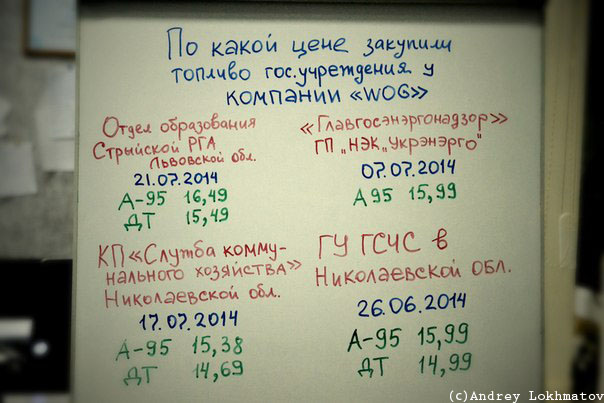 По какой цене закупили
топливо гос.учреждения у
компании «WOG»
Отдел образования
Стрыйской РГА
Львовской обл.
21.07.2014
А-95 16,49
ДТ 15,49
«Главгосэнэргонадзор»
ГП „НЭК „Укрэнерго"
07.07.2014
А 95 15,99
КП «Служба комму-
нального хозяйства»
Николаевской обл.
17.07.2014
А-95 15,38
ДТ 14,69
ГУ ГСЧС в
Николаевской обл.
26.06.2014
А-95 15,99
ДТ 14,99
(c)Andrey Lokhmatov